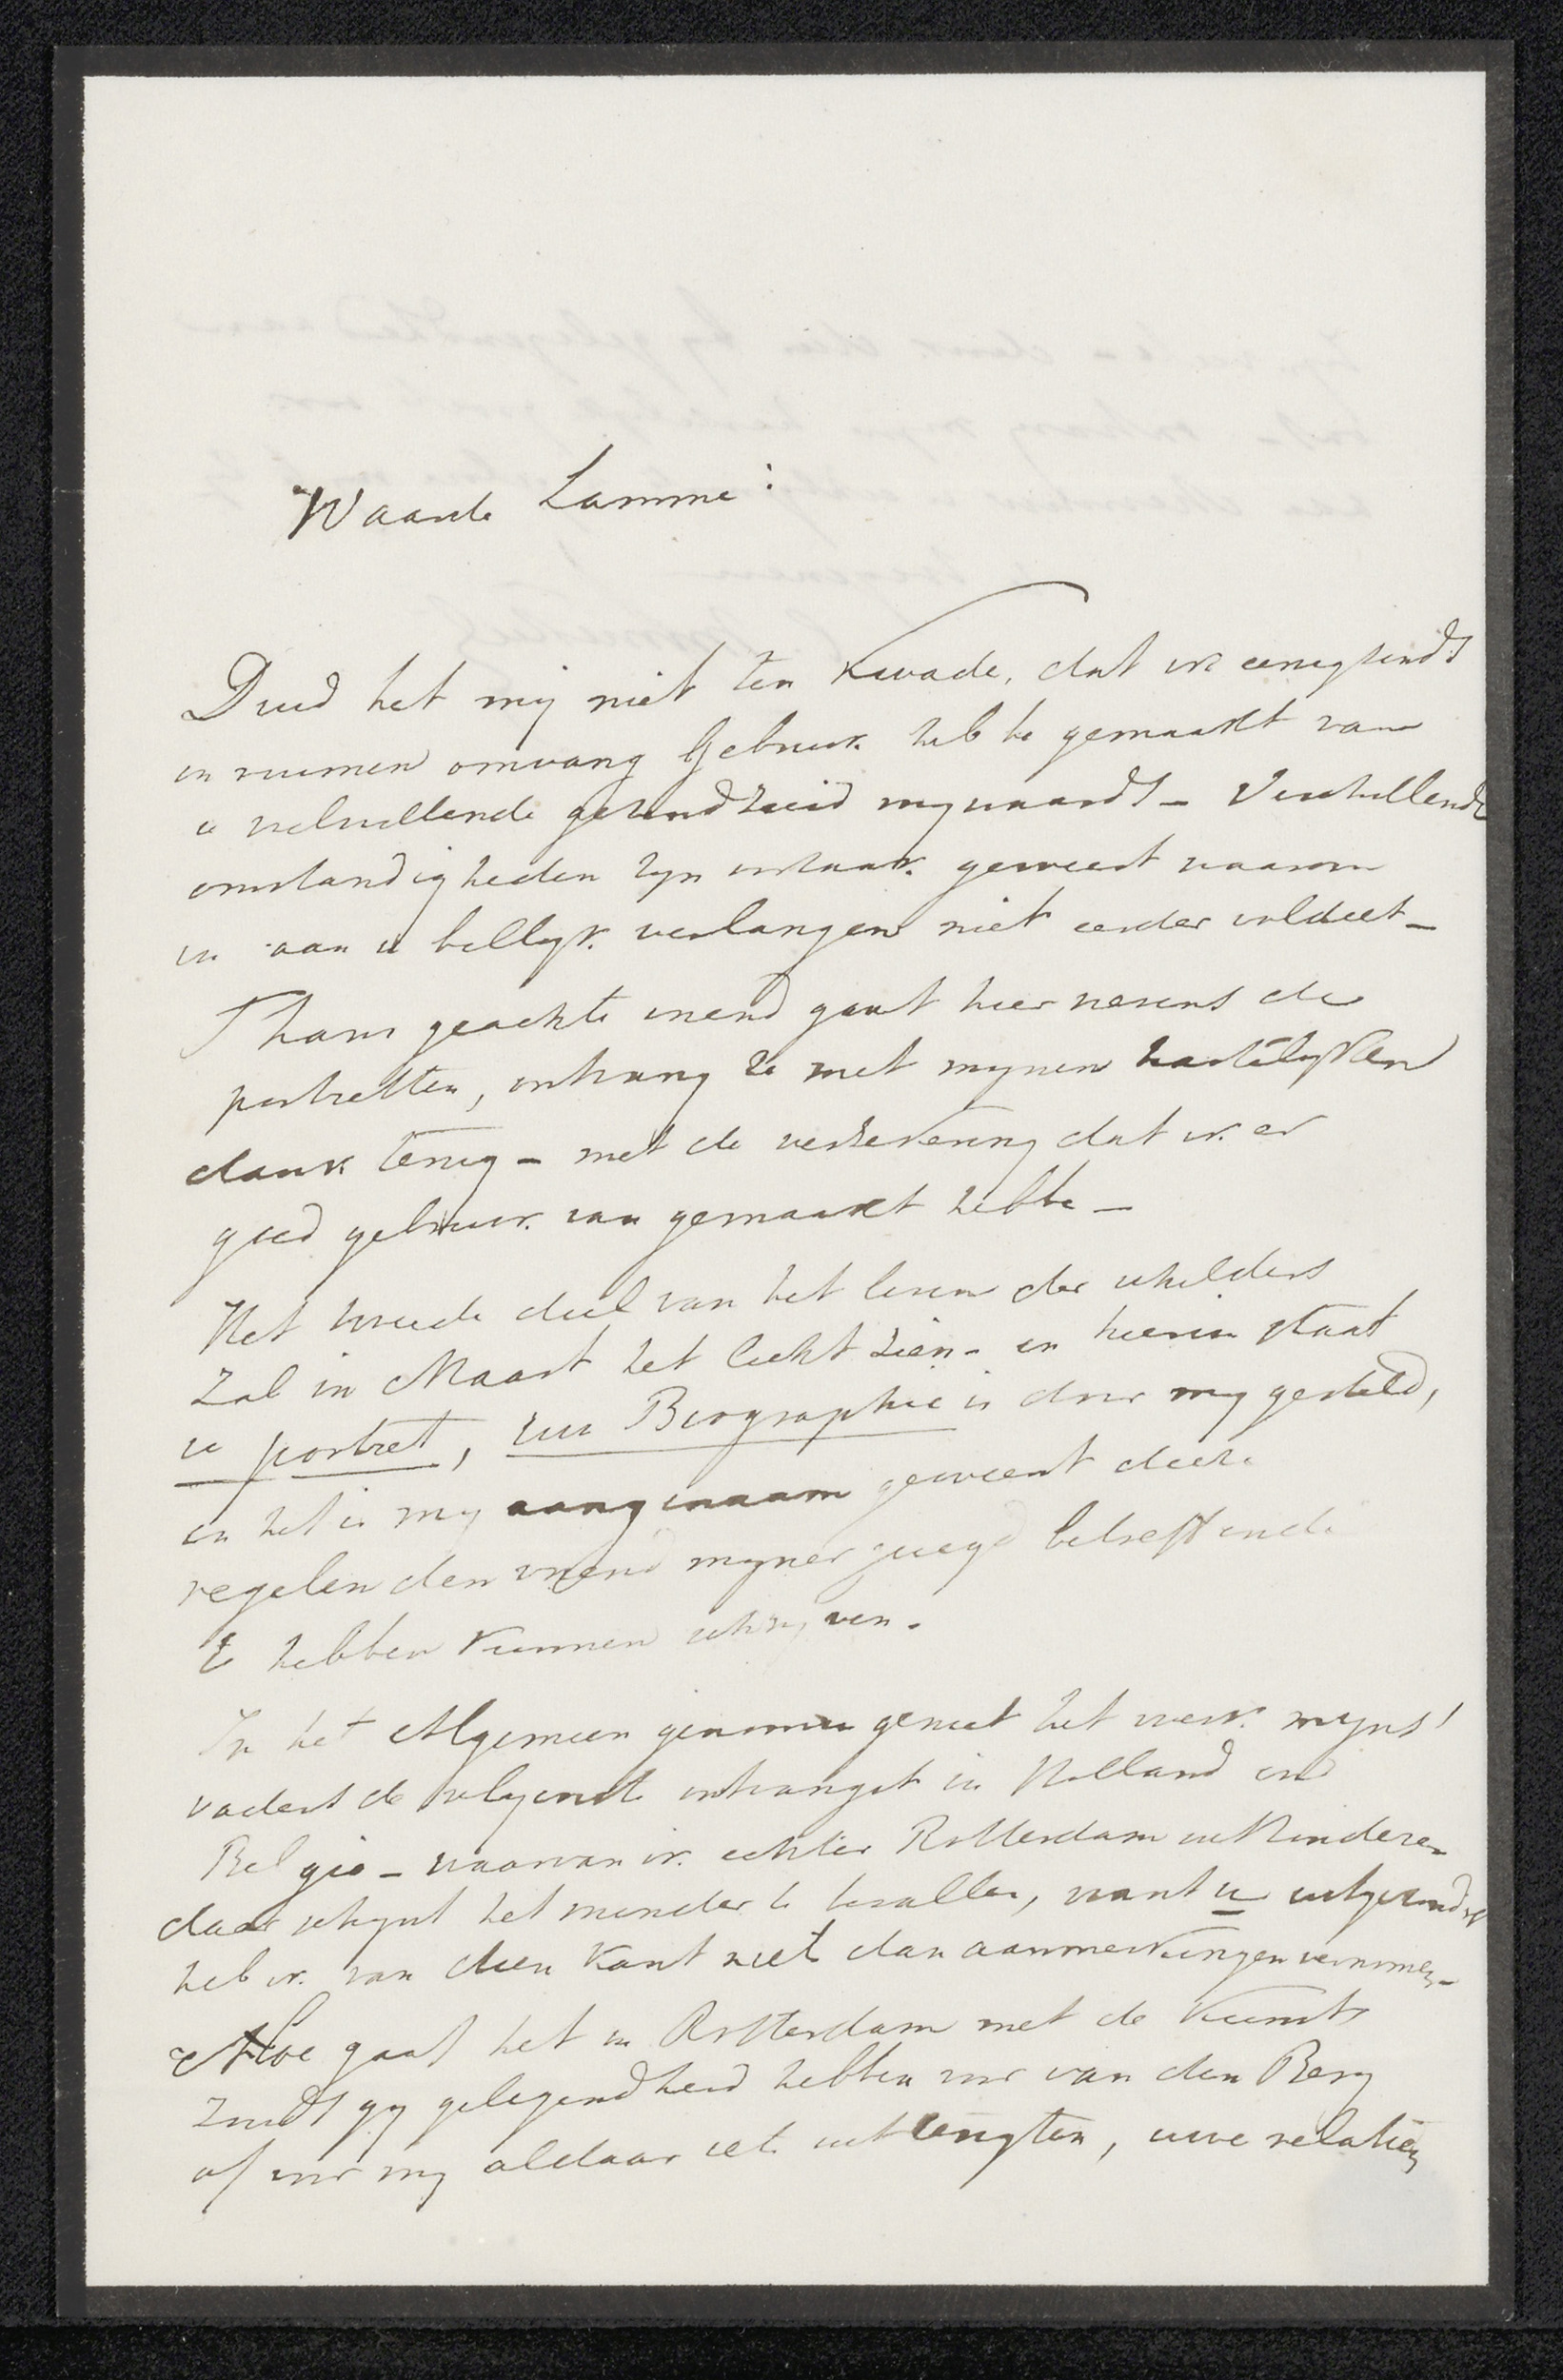 Waarde Lamme:
Duid het mij niet ten kwade, dat ik eenigsinds
in ruimen omvang gebruik hebbe gemaakt van
u welwillende gezindheid mijwaards – Verschillende
omstandigheden zyn oorzaak geweest waarom
ik aan u billyk verlangen niet eerder voldeet –
Thans geachte vriend gaat hier nevens de
portretten, ontvang ze met mynen hartelykken
dank terug – met de verzekering dat ik er
goed gebruik van gemaakt hebbe –
Het tweede deel van het leven der schilders
zal in Maart het licht zien – en hierin staat
u portret, uw Biographie is door my gesteld,
en het is my aangenaam geweest deeze
regelen den vriend myner jeugd betreffende
te hebben kunnen schryven.
In het Algemeen genomen geniet het werk myns'
vaders de vleyendste ontvangst in Holland en
Belgie – waarvan ik echter Rotterdam uitzondere
daar schynt het minder te bevallen, want u uitgezonderd
heb ik van dien kant niet dan aanmerkingen vernomen –
Hoe gaat het in Rotterdam met de kunst
zoudt gy gelegendheid hebben voor van den Berg
of voor my aldaar iets uit te rigten, uwe relatien